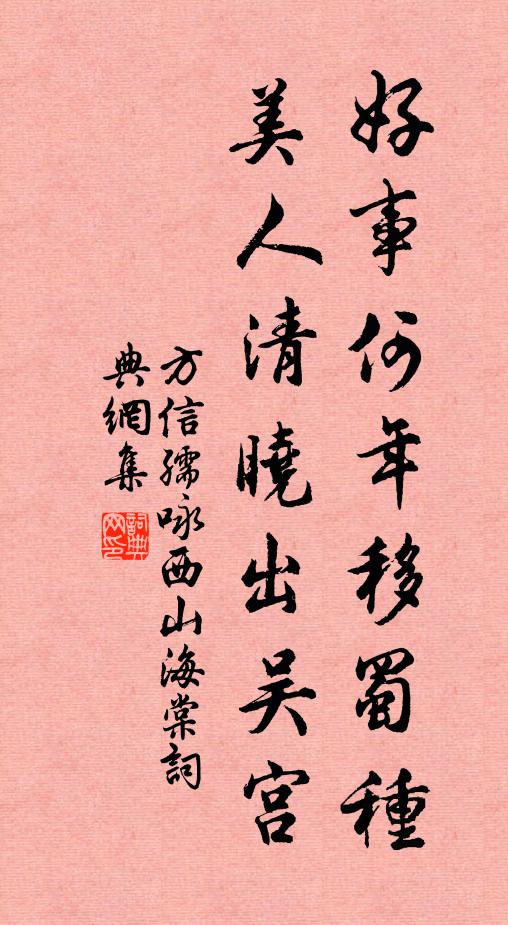 好事何年移蜀種
美人清曉出吴宫
方信孺咏西山海棠詞
典網集
詞典網印